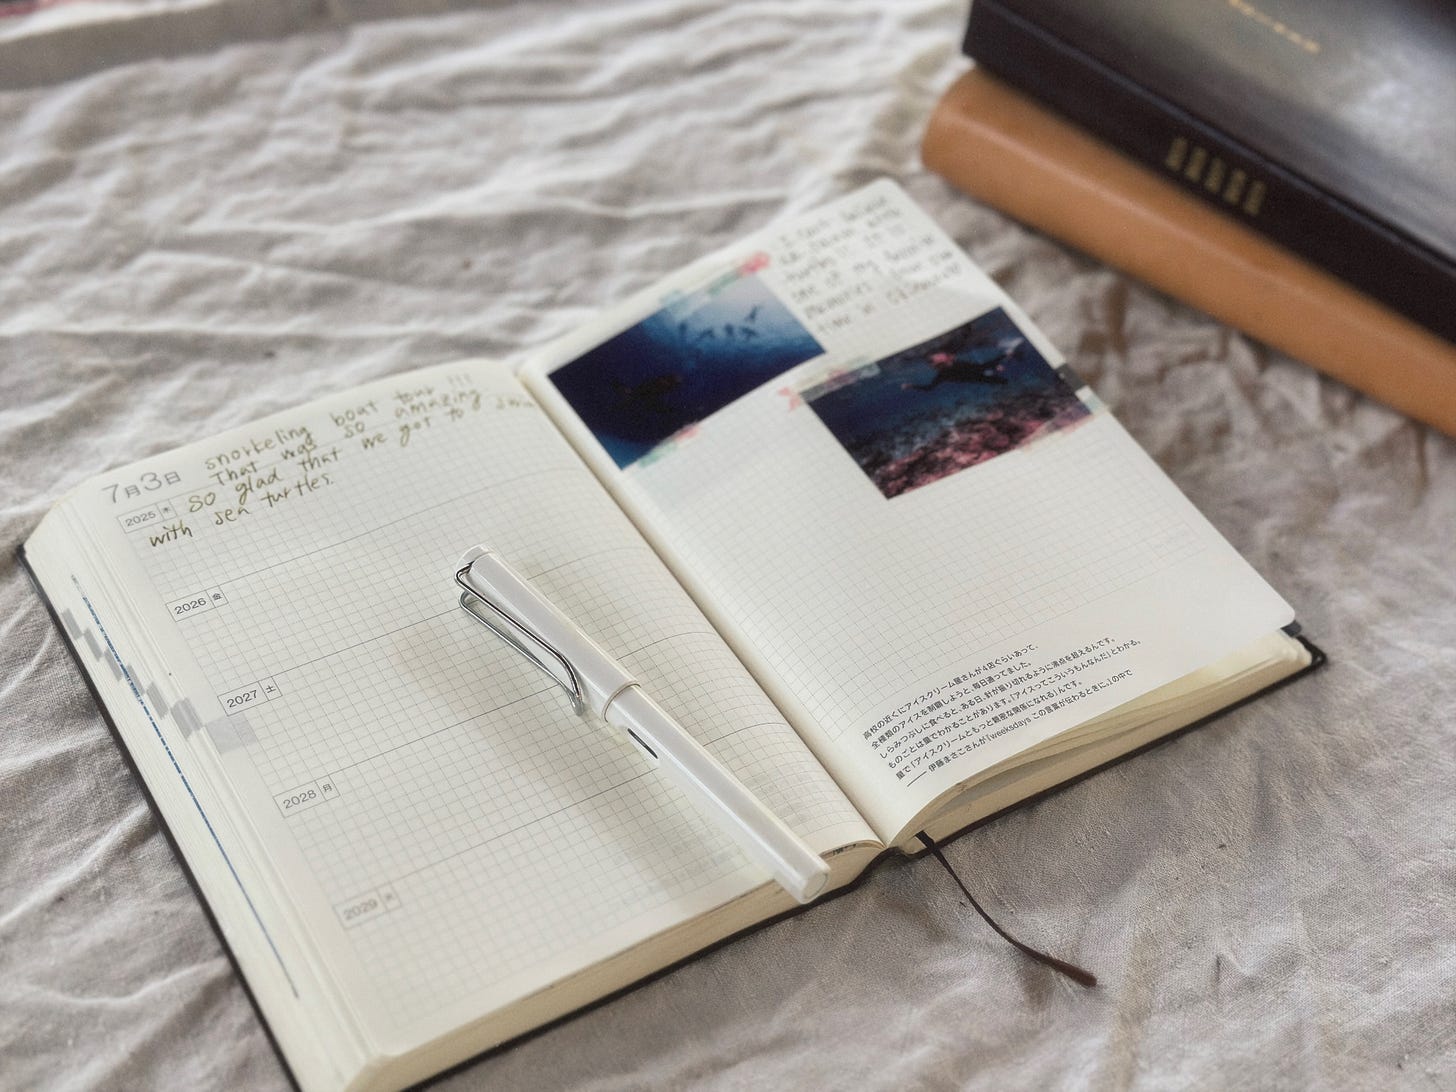 7月3日
snorkeling boat tour !!!
That was so amazing
2025 木
So glad that we got to swim
with sea turtles.
2026 金
2027 土
2028 月
2029 火
I can't
turtles
one of my
memories
time in
高校の近くにアイスクリーム屋さんが4店ぐらいあって、
全種類のアイスを制覇しようと、毎日通ってました。
しらみつぶしに食べると、ある日、針が振り切れるように沸点を超えるんです。
ものごとは量でわかることがあります。「アイスってこういうもんなんだ」とわかる。
量で「アイスクリームともっと親密な関係になれる」んです。
—— 伊藤まさこさんが『weeksdays この言葉が伝わるときに。』の中で